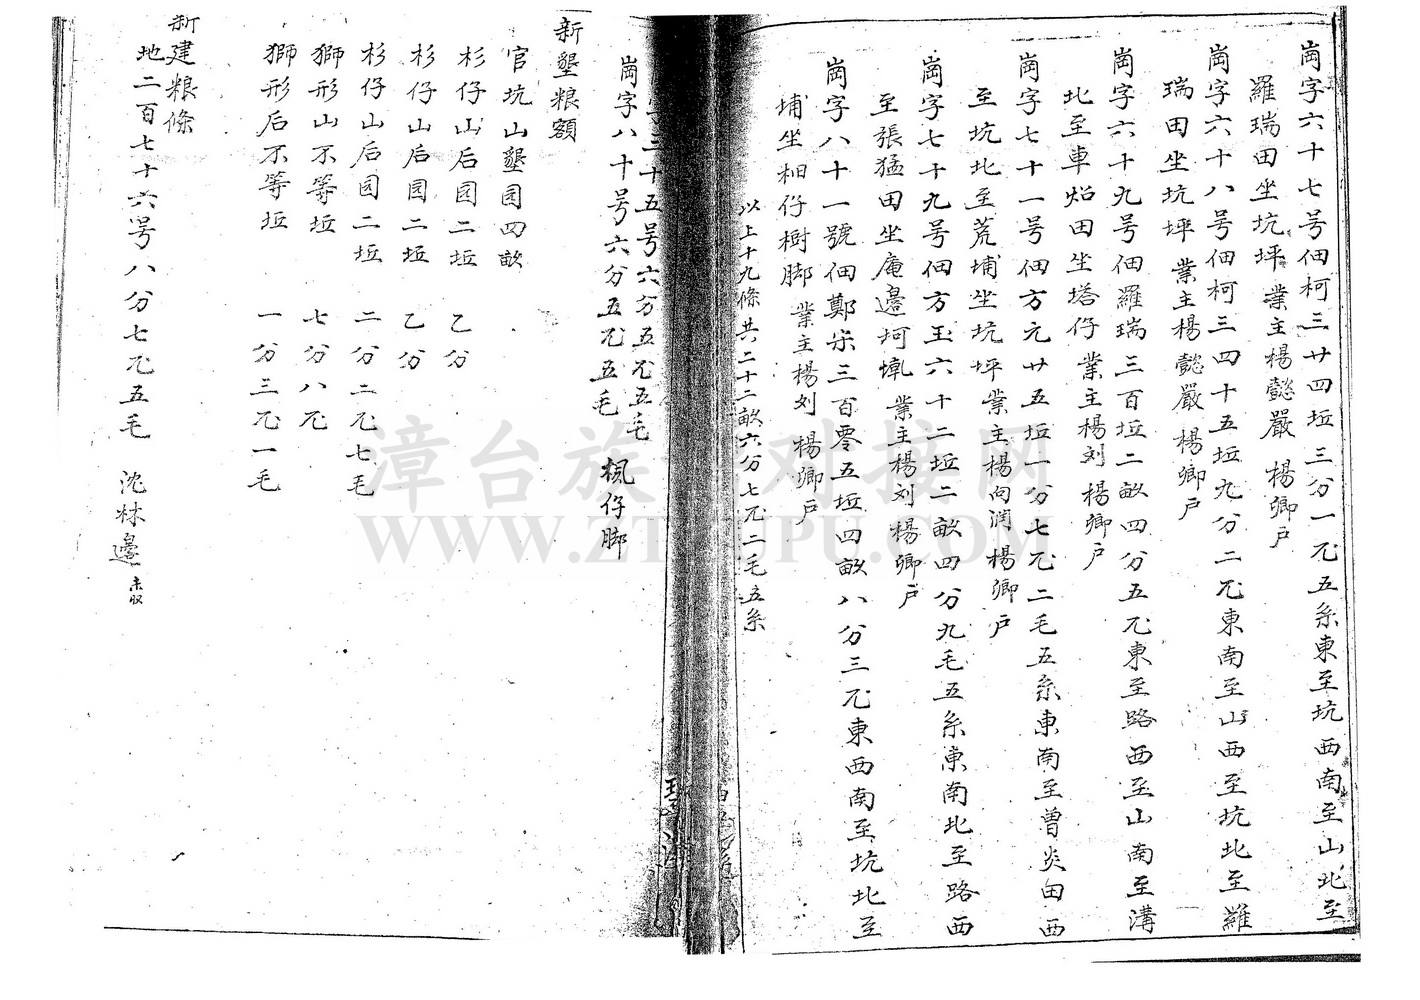 崗字六十七号佃柯三廿四坵三分一厘五系東至坑西南至山北至
羅瑞田坐坑坪 業主楊懿嚴 楊卿户
崗字六十八号佃柯三四十五坵九分二厘東南至山西至坑北至羅
瑞田坐坑坪 業主楊懿嚴 楊卿户
崗字六十九号佃羅瑞三百坵二畝四分五厘東至路西至山南至溝
北至車炲田坐塔仔 業主楊刘 楊卿户
崗字七十一号佃方元廿五坵一分七厘二毛五系東南至曾炎田西
至坑北至荒埔坐坑坪 業主楊向润 楊卿户
崗字七十九号佃方玉六十二坵二畝四分九毛五系東南北至路西
至張猛田坐庵邊坷墘 業主楊刘 楊卿户
崗字八十一號佃鄭宋三百零五坵四畝八分三厘東西南至坑北至
埔坐柏仔樹脚 業主楊刘 楊卿户
以上十九條共二十二畝六分七厘二毛五系
三十五号六分五厘五毛
崗字八十号六分五厘五毛 楓仔脚
新墾粮額
官坑山墾园四畝
杉仔山后园二坵 乙分
杉仔山后园二坵 乙分
杉仔山后园二坵 二分二厘七毛
獅形山不等坵 七分八厘
獅形后不等坵 一分三厘一毛
新建粮條
地二百七十六号八分七厘五毛 沈林邊 未收
漳台族谱对接网
WWW.ZTZUPU.COM